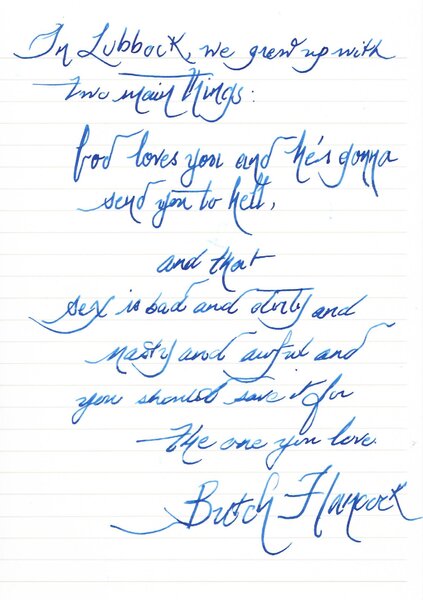 In Lubbock, we grew up with
two main things:
God loves you and he's gonna
send you to hell,
and that
sex is bad and dirty and
nasty and awful and
you should save it for
the one you love.
Butch Hancock